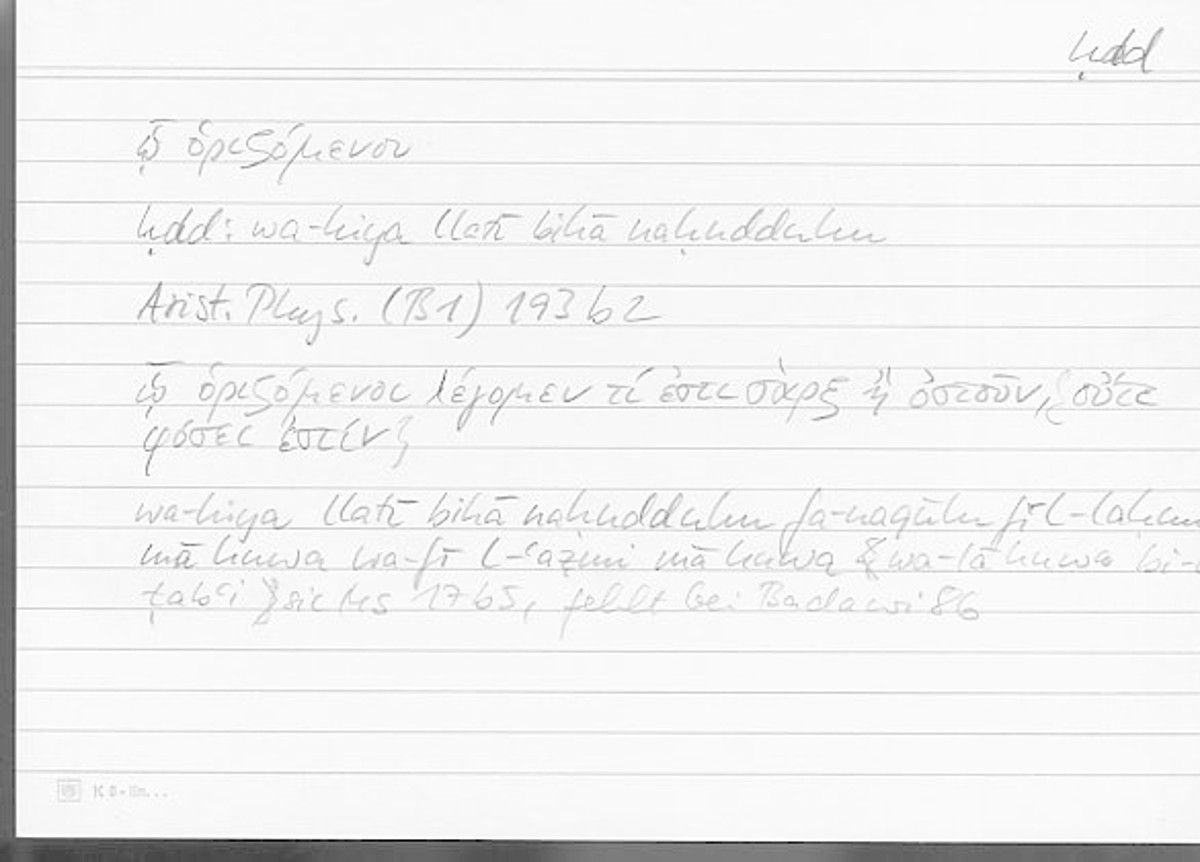 ḥdd
ᾧ ὁριζόμενοι
ḥdd: wa-hiya llatī bihā naḥudduhu
Arist. Phys. (B1) 193 b 2
ᾧ ὁριζόμενοι λέγομεν τί ἐστι σὰρξ ἢ ὀστοῦν, {οὔτε
φύσει ἐστίν}
wa-hiya llatī bihā naḥudduhu fa-naqūlu fī l-laḥm
mā huwa wa-fī l-ʿaẓmi mā huwa {wa-lā huwa bi-
ṭabʿi} sic Ms 17b5, fehlt bei Badawi 86